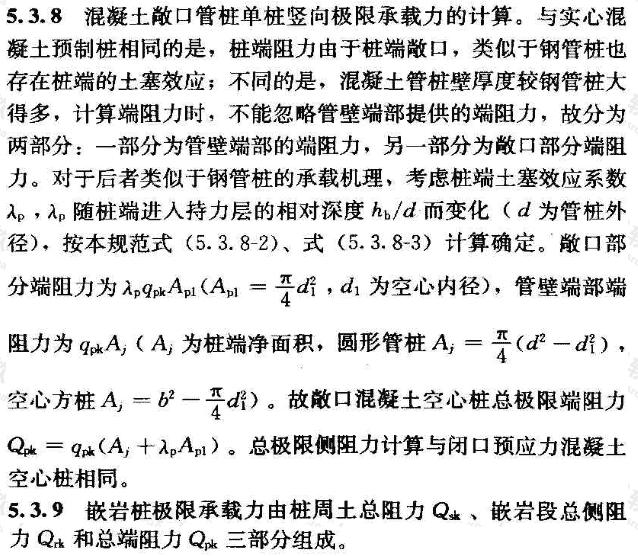 5.3.8 混凝土敞口管桩单桩竖向极限承载力的计算。与实心混
凝土预制桩相同的是，桩端阻力由于桩端敞口，类似于钢管桩也
存在桩端的土塞效应；不同的是，混凝土管桩壁厚度较钢管桩大
得多，计算端阻力时，不能忽略管壁端部提供的端阻力，故分为
两部分：一部分为管壁端部的端阻力，另一部分为敞口部分端阻
力。对于后者类似于钢管桩的承载机理，考虑桩端土塞效应系数
λp，λp 随桩端进入持力层的相对深度 hb/d 而变化（d 为管桩外
径），按本规范式（5.3.8-2）、式（5.3.8-3）计算确定。敞口部
分端阻力为 λp qpk Ap1（Ap1 = π/4 d₁²，d₁ 为空心内径），管壁端部端
阻力为 qpk Aj（Aj 为桩端净面积，圆形管桩 Aj = π/4 (d² − d₁²)，
空心方桩 Aj = b² − π/4 d₁²）。故敞口混凝土空心桩总极限端阻力
Qpk = qpk(Aj + λp Ap1)。总极限侧阻力计算与闭口预应力混凝土
空心桩相同。
5.3.9 嵌岩桩极限承载力由桩周土总阻力 Qsk、嵌岩段总侧阻
力 Qrk 和总端阻力 Qpk 三部分组成。